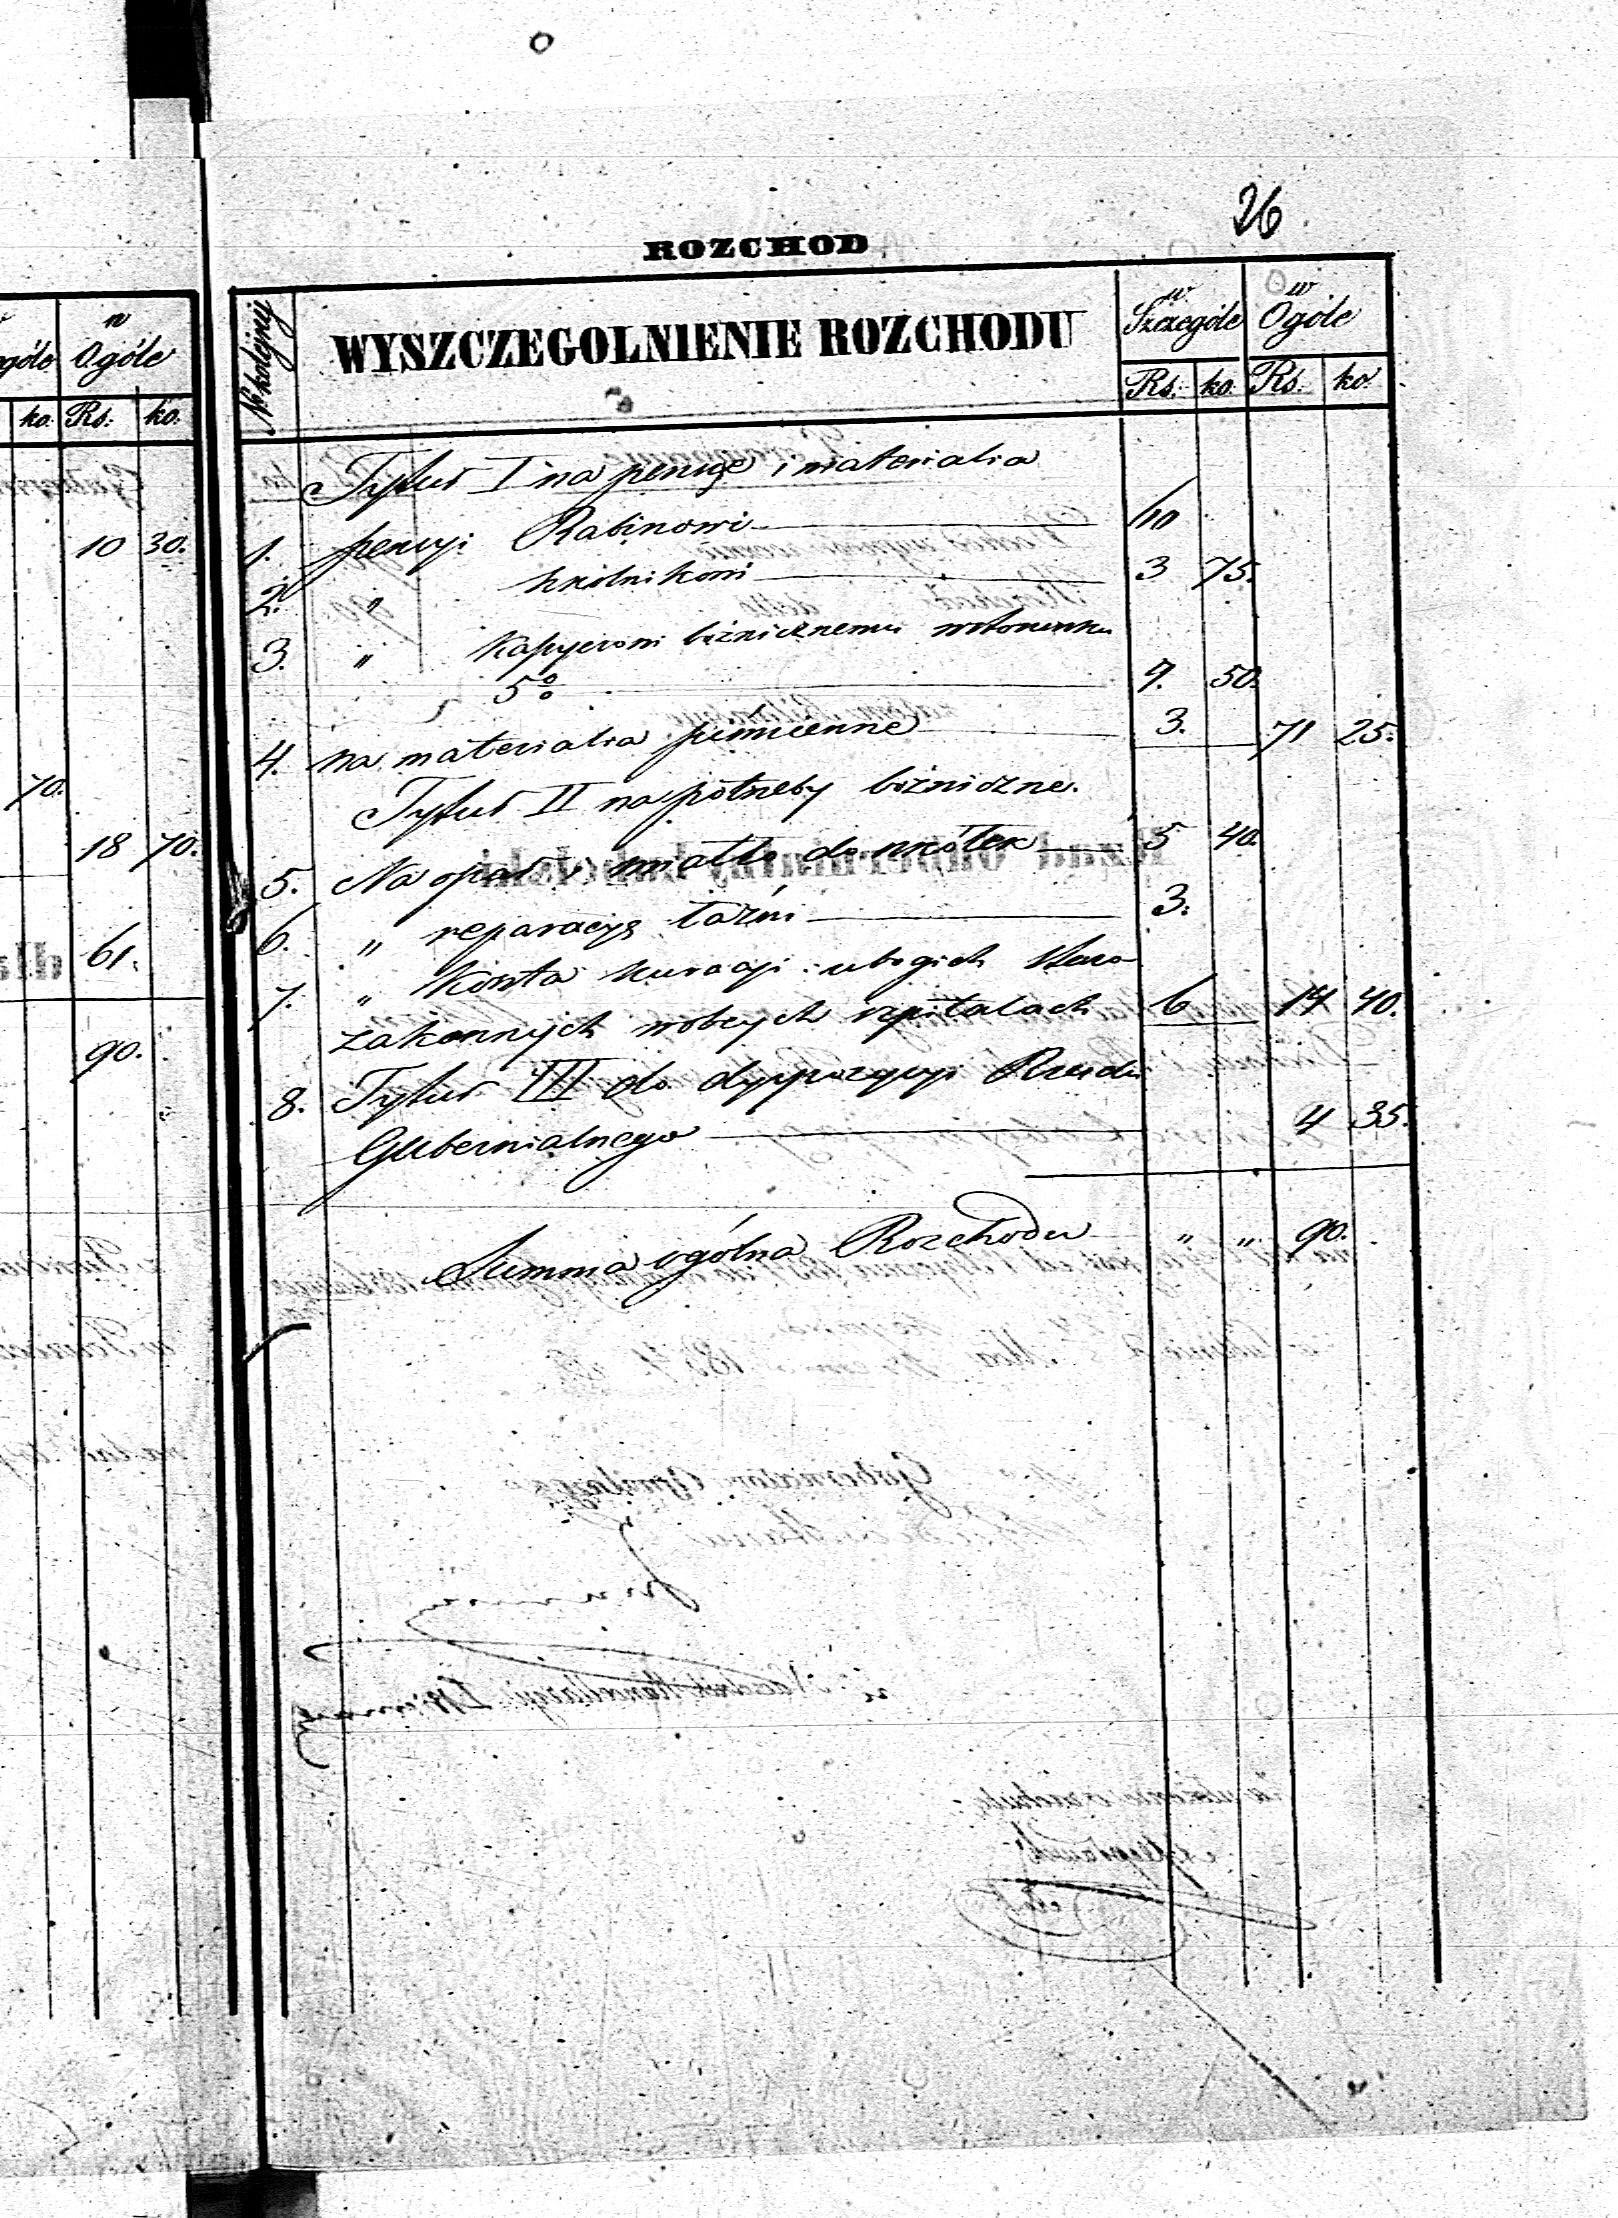 26
ROZCHOD
No kolejny
WYSZCZEGOLNIENIE ROZCHODU
w Szczególe
w Ogóle
Rs. ko. Rs. ko.
Tytuł I na pensye i materialia
1. pensyi Rabinowi 60
2. " szkolnikowi 3 75.
3. " Kassyerowi bóżnicznemu wstosunku
5% 4. 50.
4. na materialia piśmienne 3. 71 25.
Tytuł II na potrzeby bóżniczne.
5. Na opał i światło do szkółek 5 40.
6. " reparacyę łaźni 3.
7. " Koszta kuracyi ubogich Staro
zakonnych wobcych szpitalach 6 14 40.
8. Tytuł III do dyspozycyi Rządu
Gubernialnego 4 35.
Summa ogólna Rozchodu " " 90.
w
Ogóle
ko. Rs: ko:
10 30.
70.
18 70.
61.
90.